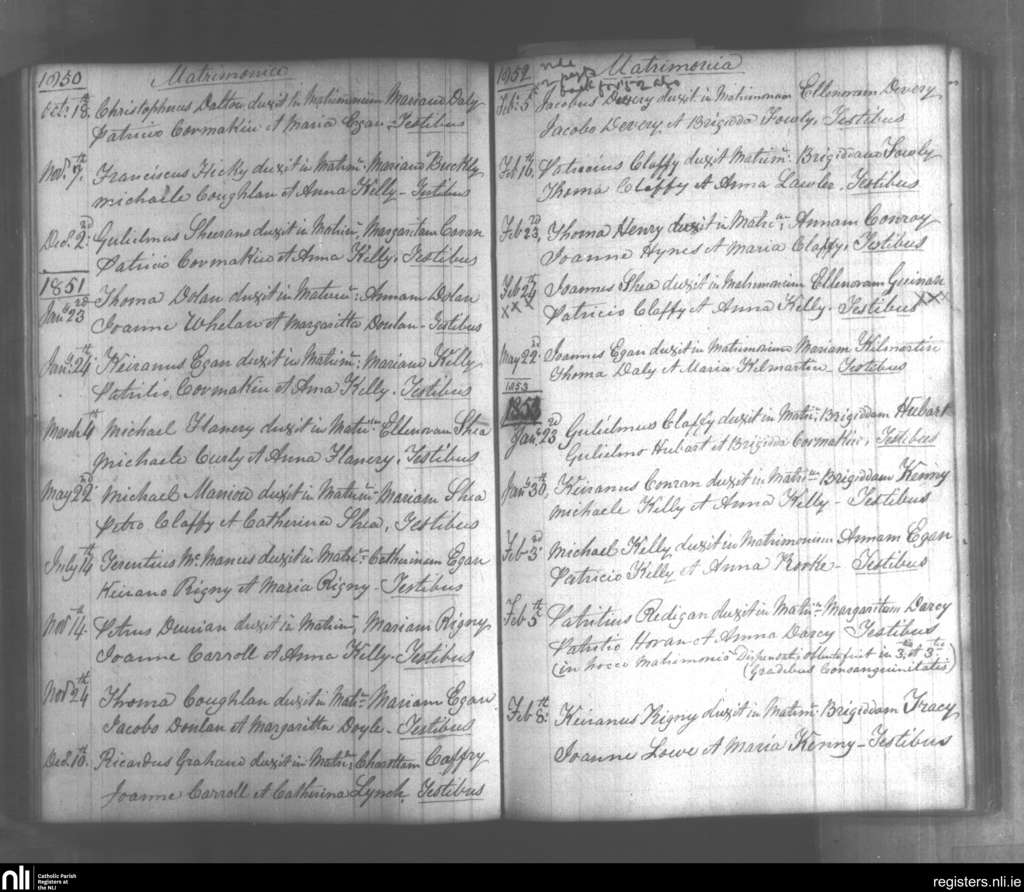 1850 Matrimonia
Octr. 18th Christopherus Dalton duxit in Matrimonium Marianam Daly
Patricio Cormakin et Maria Egan - Testibus
Novr. 7th Franciscus Hicky duxit in Matrim: Mariam Buckly
Michaele Coughlan et Anna Kelly - Testibus
Decr. 2nd Gulielmus Sheerans duxit in Matrim, Margaritam Covan
Patricio Cormakin et Anna Kelly. Testibus
1851
Jany 23rd Thoma Dolan duxit in Matrim: Annam Dolan
Joanne Whelan et Margaritta Doulan - Testibus
Jany. 24th Keiranus Egan duxit in Matrim: Mariam Kelly
Patritio Cormakin et Anna Kelly. Testibus
March 4th Michael Flanery duxit in Matrim Ellenoram Shea
Michaele Curly et Anna Flanery. Testibus
May 22nd Michael Mannion duxit in Matrim - Mariam Shea
Petro Claffy et Catherina Shea, Testibus
July 14th Terentius Mc Manus duxit in Matrim - Catharinam Egan
Keirano Rigny et Maria Rigny - Testibus
Novr 14th Petrus Dunian duxit in Matrim, Mariam Rigny
Joanne Carroll et Anna Kelly - Testibus
Novr 24th Thoma Coughlan duxit in Matrim - Mariam Egan
Jacobo Doulan et Margaritta Doyle - Testibus
Decr. 10th Ricardus Graham duxit in Matrim: Charottam Caffry
Joanne Carroll et Catherina Lynch, Testibus
1852 Matrimonia
back for 52 also
Feb. 5th Jacobus Devery duxit in Matrimonum Ellenoram Devery
Jacobo Devery, et Brigida Fowly, Testibus
Feb 16th Patricius Claffy duxit Matrim: Brigidam Fowly
Thoma Claffy et Anna Lawler. Testibus
Feb 23rd, Thoma Henry duxit in Matrim, Annam Conroy
Joanne Hynes et Maria Claffy. Testibus
Feb 24th Joannes Shea duxit in Matrimonium Ellenoram Guinan
xxx Patricio Claffy et Anna Kelly. Testibus xxx
May 22nd Joannes Egan duxit in Matrimonium Mariam Kilmartin
Thoma Daly et Maria Kilmartin - Testibus
1853
1853
Jany. 23rd Gulielmus Claffy duxit in Matrim, Brigiddam Hubart
Gulielmo Hubart et Brigida Cormakin. Testibus
Jany 30th, Keiranus Conran duxit in Matrim Brigiddam Kenny
Michaele Kelly et Anna Kelly - Testibus
Feb 3rd Michael Kelly, duxit in Matrimonium Annam Egan
Patricio Kelly et Anna Rorke - Testibus
Feb 5th Patritius Redigan duxit in Matrim Margaritam Darcy
Patritio Horan et Anna Darcy Testibus
(in hocce Matrimonio Dispensatio obtenta fuit in 3o. et 3tio
(Gradibus Consanguinitatis)
Feb 8th: Keiranus Rigny duxit in Matrim: Brigiddam Tracy
Joanne Lowe et Maria Kenny - Testibus
nli
Catholic Parish
Registers at
the NLI
registers.nli.ie